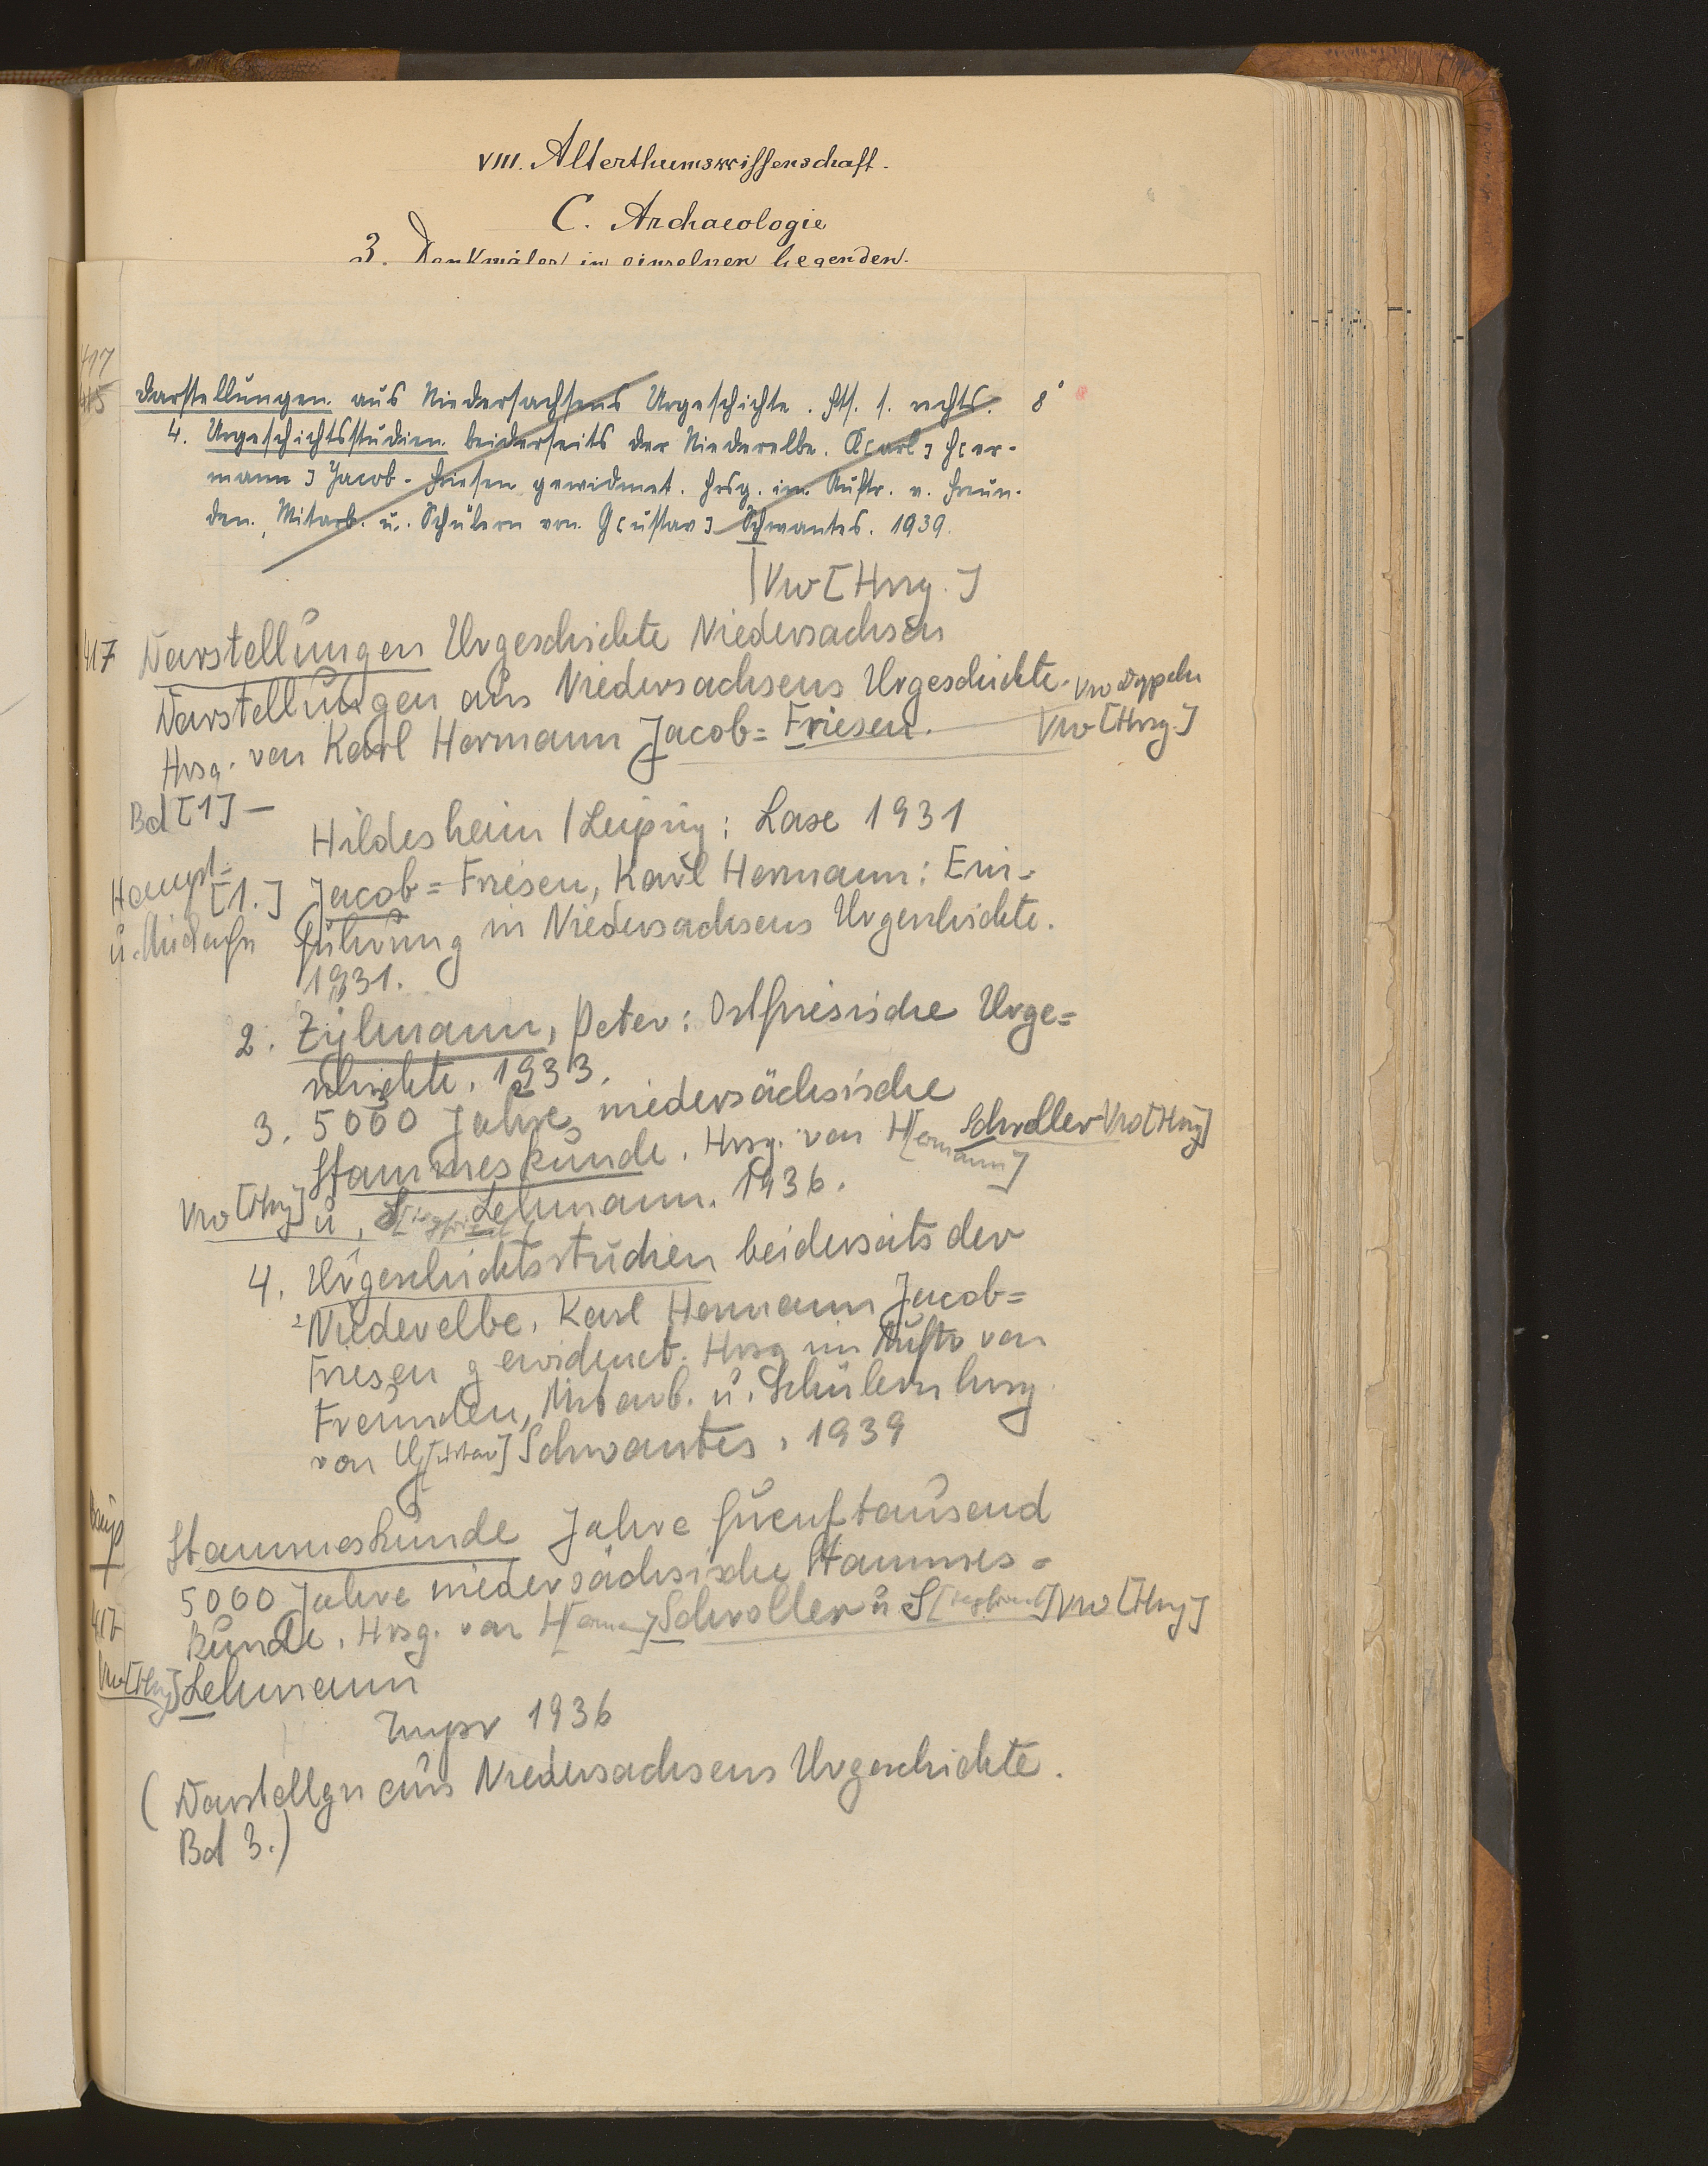 VIII. Alterthumswissenschaft.
C. Archaeologie
3. Denkmäler in einzelnen Gegenden.
417
415
Darstellungen aus Niedersachsens Urgeschichte. Fts. s. rechts. 8°
4. Urgeschichtsstudien beiderseits der Niederelbe. K[arl] H[er-
mann] Jacob-Friesen gewidmet. Hrsg. im Auftr. v. Freun-
den, Mitarb. u. Schülern von G[ustav] Schwantes. 1939.
Vw [Hrsg.]
417 Darstellungen Urgeschichte Niedersachsen
Darstellungen aus Niedersachsens Urgeschichte. Vw
Hrsg. von Karl Hermann Jacob=Friesen. Vw [Hrsg.]
Bd [1] —
Hildesheim / Leipzig: Lax 1931
Haupt=
[1.] Jacob=Friesen, Karl Hermann: Ein=
u. führung in Niedersachsens Urgeschichte.
1931.
2. Zylmann, Peter: Ostfriesische Urge=
schichte. 1933.
3. 5000 Jahre niedersächsische
Stammeskunde. Hrsg. von H[ermann] Schroller Vw [Hrsg]
Vw [Hrsg] u. S[iegfried] Lehmann. 1936.
4. Urgeschichtsstudien beiderseits der
Niederelbe. Karl Hermann Jacob=
Friesen gewidmet. Hrsg im Auftr von
Freunden, Mitarb. u. Schülern hrsg
von G[ustav] Schwantes. 1939
Haupt
Stammeskunde Jahre fuenftausend
5000 Jahre niedersächsische Stammes=
417
kunde. Hrsg. von H[ermann] Schroller u S[iegfried] Vw [Hrsg]
Vw [Hrsg] Lehmann
1936
(Darstellgn aus Niedersachsens Urgeschichte.
Bd 3.)